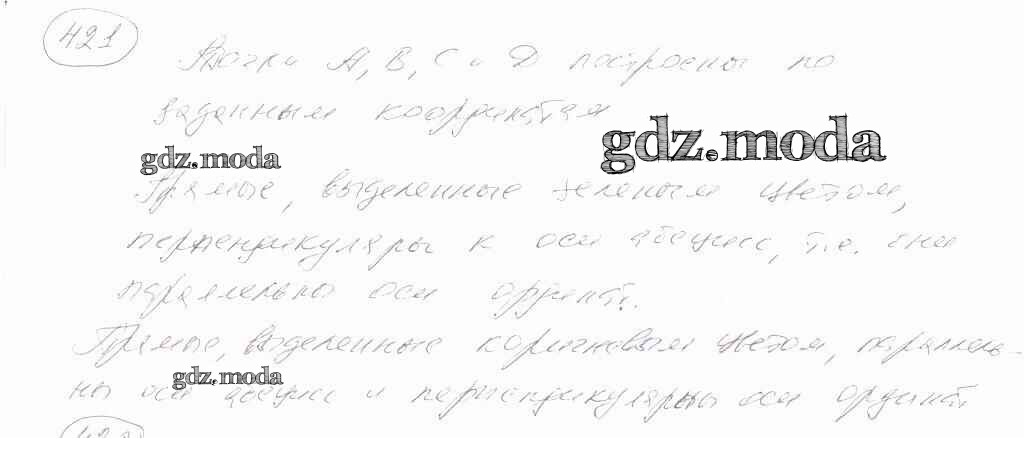 421
Точки А, В, С и D построены по
заданным координатам
gdz.moda
gdz.moda
Прямые, выделенные зеленым цветом,
перпендикуляры к оси абсцисс, т.е. они
параллельны оси ординат.
Прямые, выделенные коричневым цветом, параллель-
ны оси абсцисс и перпендикулярны оси ординат
gdz.moda